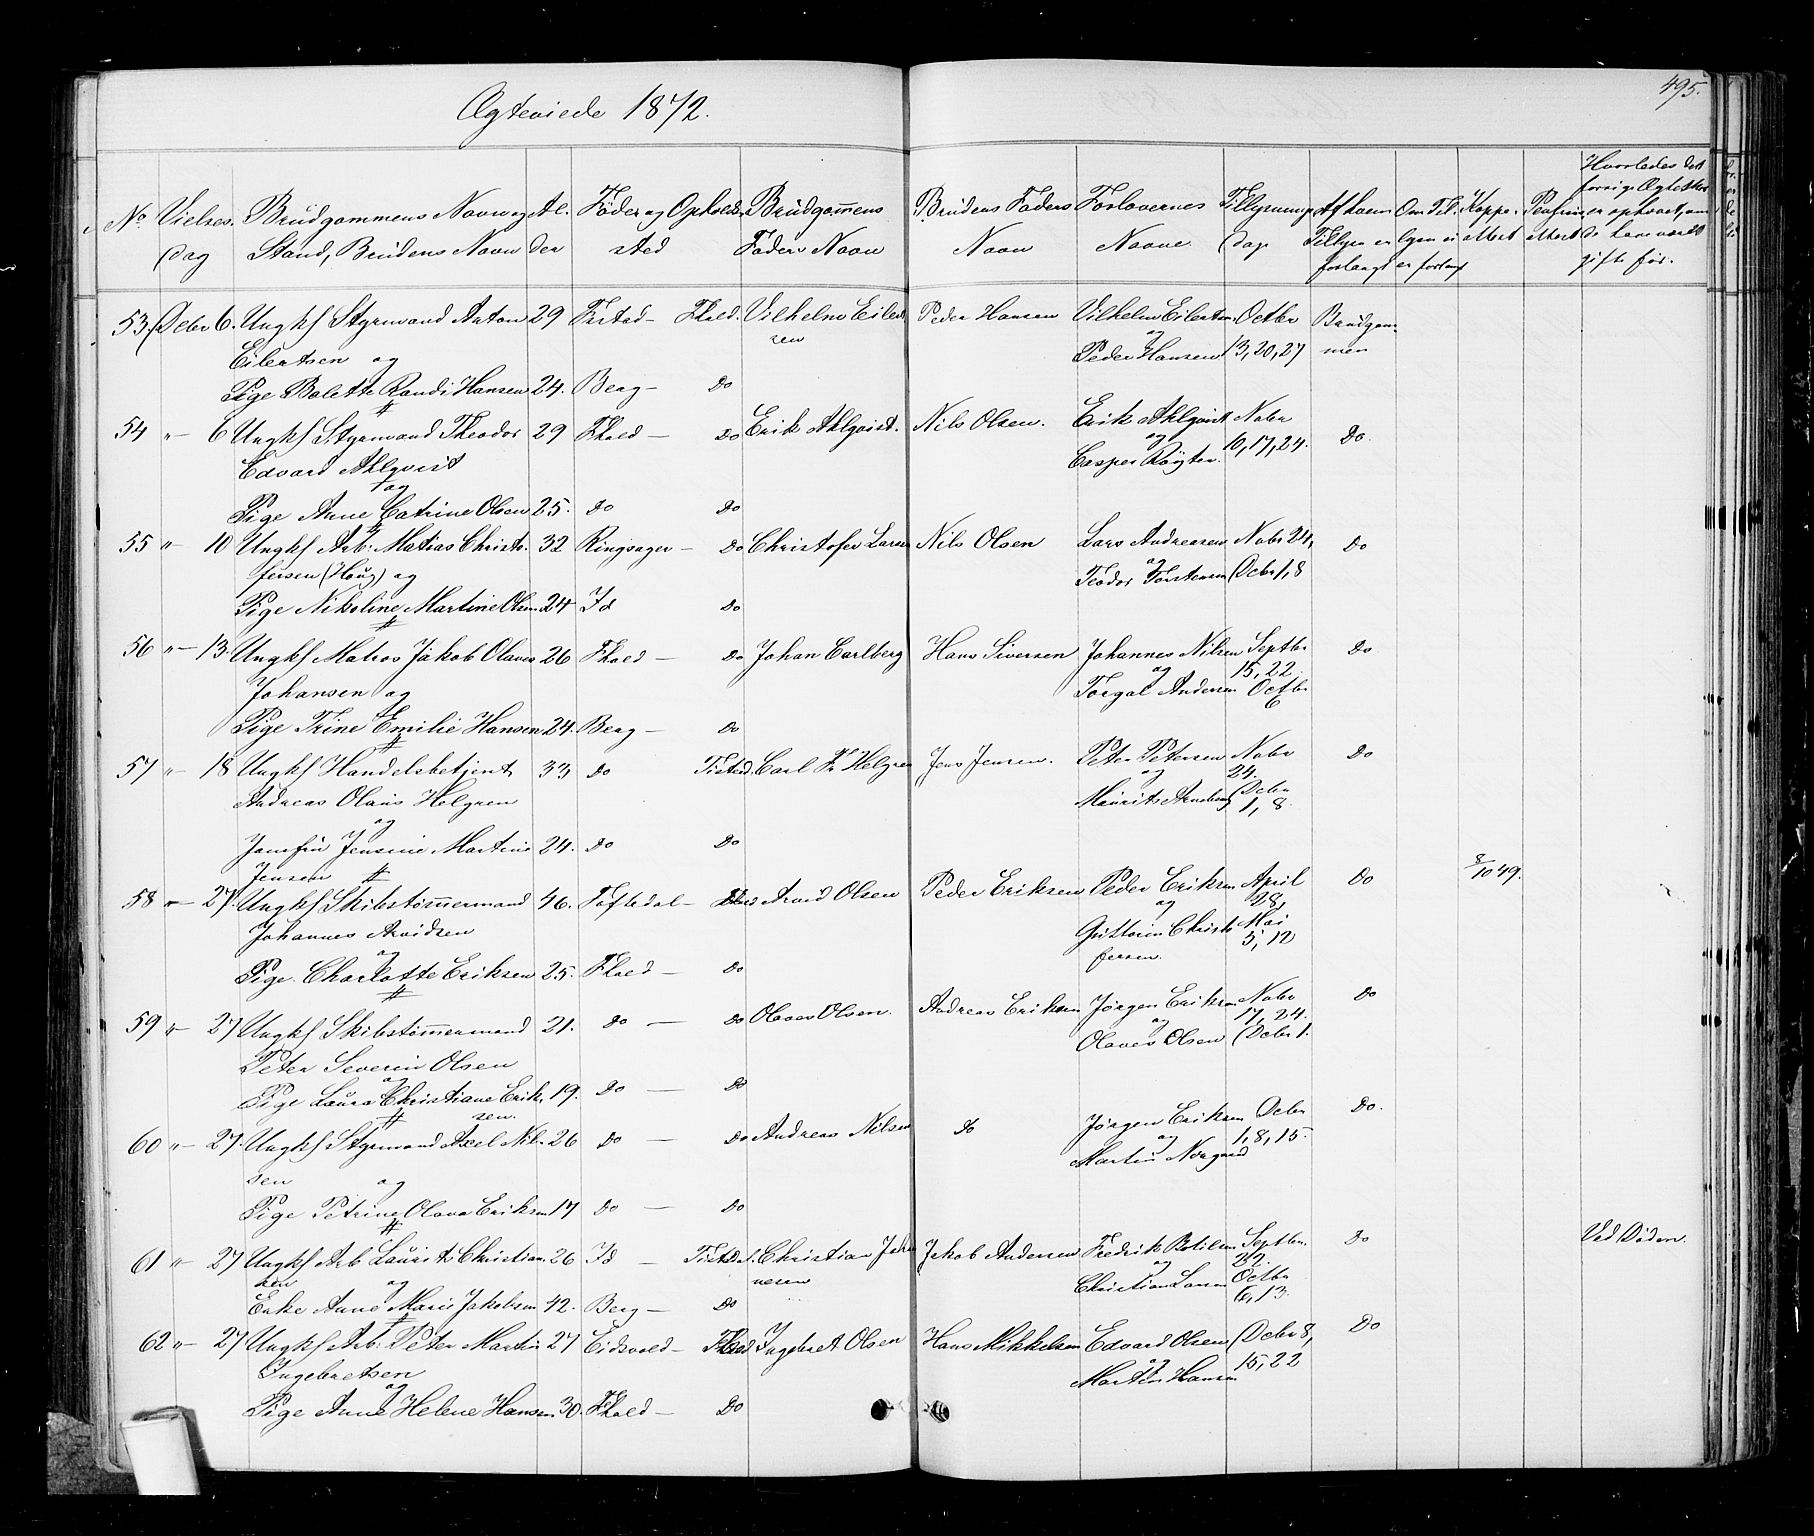 Ægteviede 1872.
495.
No Vielses dag
Brudgommens Navn og Stand, Brudens Navn
Al der
Føde og Opholds sted
Brudgommens Fader Navn
Brudens Faders Navn
Forlovernes Navne
Tillysnings dag
Af hvem Tillysn er forlangt
Om Til lysn ei er forlangt
Koppe attest
Hvorledes det forrige Ægteskab er ophævet, om de have været gifte før.
53 Decbr 6. Ungkf Styrmand Anton 29 Fistad — Fhald. Vilhelm Eilert Peder Hansen Vilhelm Eilertsen Octbr Brudgom
Eilertsen og sen og Peder Hansen 13, 20, 27 men
Pige Bolette Randi Hansen 24. Berg — Do
54 " - 6 Ungkf Styrmand Theodor 29 Fhald — Do Erik Ahlqvist. Nils Olsen. Erik Ahlqvist Novbr
Edvard Ahlqvist og Casper 10, 17, 24. Do.
og
Pige Anne Catrine Olsen 25. Do Do
55 " - 10 Ungkf Arb: Matias Christo 32 Ringsager — Do Christofer Larsen Nils Olsen Lars Andreasen Novbr 24, Do
fersen (Haug) og og Teodor Torstensen Decbr 1, 8
Pige Nikoline Martine Olsen 24 Id Do
56 " - 13. Ungkf Matros Jakob Olaves 26 Fhald — Do Johan Carlberg Hans Siversen Johannes Nilsen Septbr Do
Johansen og og 15, 22
Torgal Andersen Octbr 6
Pige Trine Emilie Hansen 24. Berg — Do
57 " - 18 Ungkf Handelsbetjent 33, Do Tistad. Carl Fr Helgren Jens Jensen. Peter Petersen Novbr Do
Andreas Olaus Helgren og 24.
Maurits Arneberg Decbr
og 1, 8.
Jomfru Jensine Martine 24. Do Do
Jensen
58 " - 27. Ungkf Skibstømmermand 46. Toftedal — Fhald Arvid Olsen Peder Eriksen Peder Eriksen April Do 8/10 49.
Johannes Arvidsen og 28,
Christo Mai
fersen. 5, 12
og
Pige Charlotte Eriksen 25. Fhald — Do
59 " - 27 Ungkf Skibstømmermand 21. Do — Do Olaves Olsen. Andreas Eriksen Jørgen Eriksen Novbr Do
Peter Severin Olsen og 17, 24.
Olaves Olsen Decbr 1.
og
Pige Laura Christiane Erik 19. Do — Do
sen.
60 " - 27. Ungkf Styrmand Axel Nil 26 Do — Do Andreas Nilsen Do Jørgen Eriksen Decbr Do.
sen og og 1, 8, 15.
Martin Norgaard
Pige Petrine Olava Eriksen 17 Do — Do
61 " - 27 Ungkf Arb Laurits Christian 26 Id — Tistedal. Christian Johan Jakob Andersen Fredrik Botilsen Septbr. Do Ved Døden.
sen og nesen og 22.
Christian Larsen Octbr
6, 13.
Enke Anne Marie Jakobsen 42. Berg — Do
62 " - 27 Ungkf Arb: Peter Martin 27 Eidsvold — Fhald Ingebret Olsen Hans Mikkelsen Edvard Olsen Decbr 8, Do
Ingebretsen og 15, 22
Martin Hansen
og
Pige Anne Helene Hansen 30. Fhald — Do